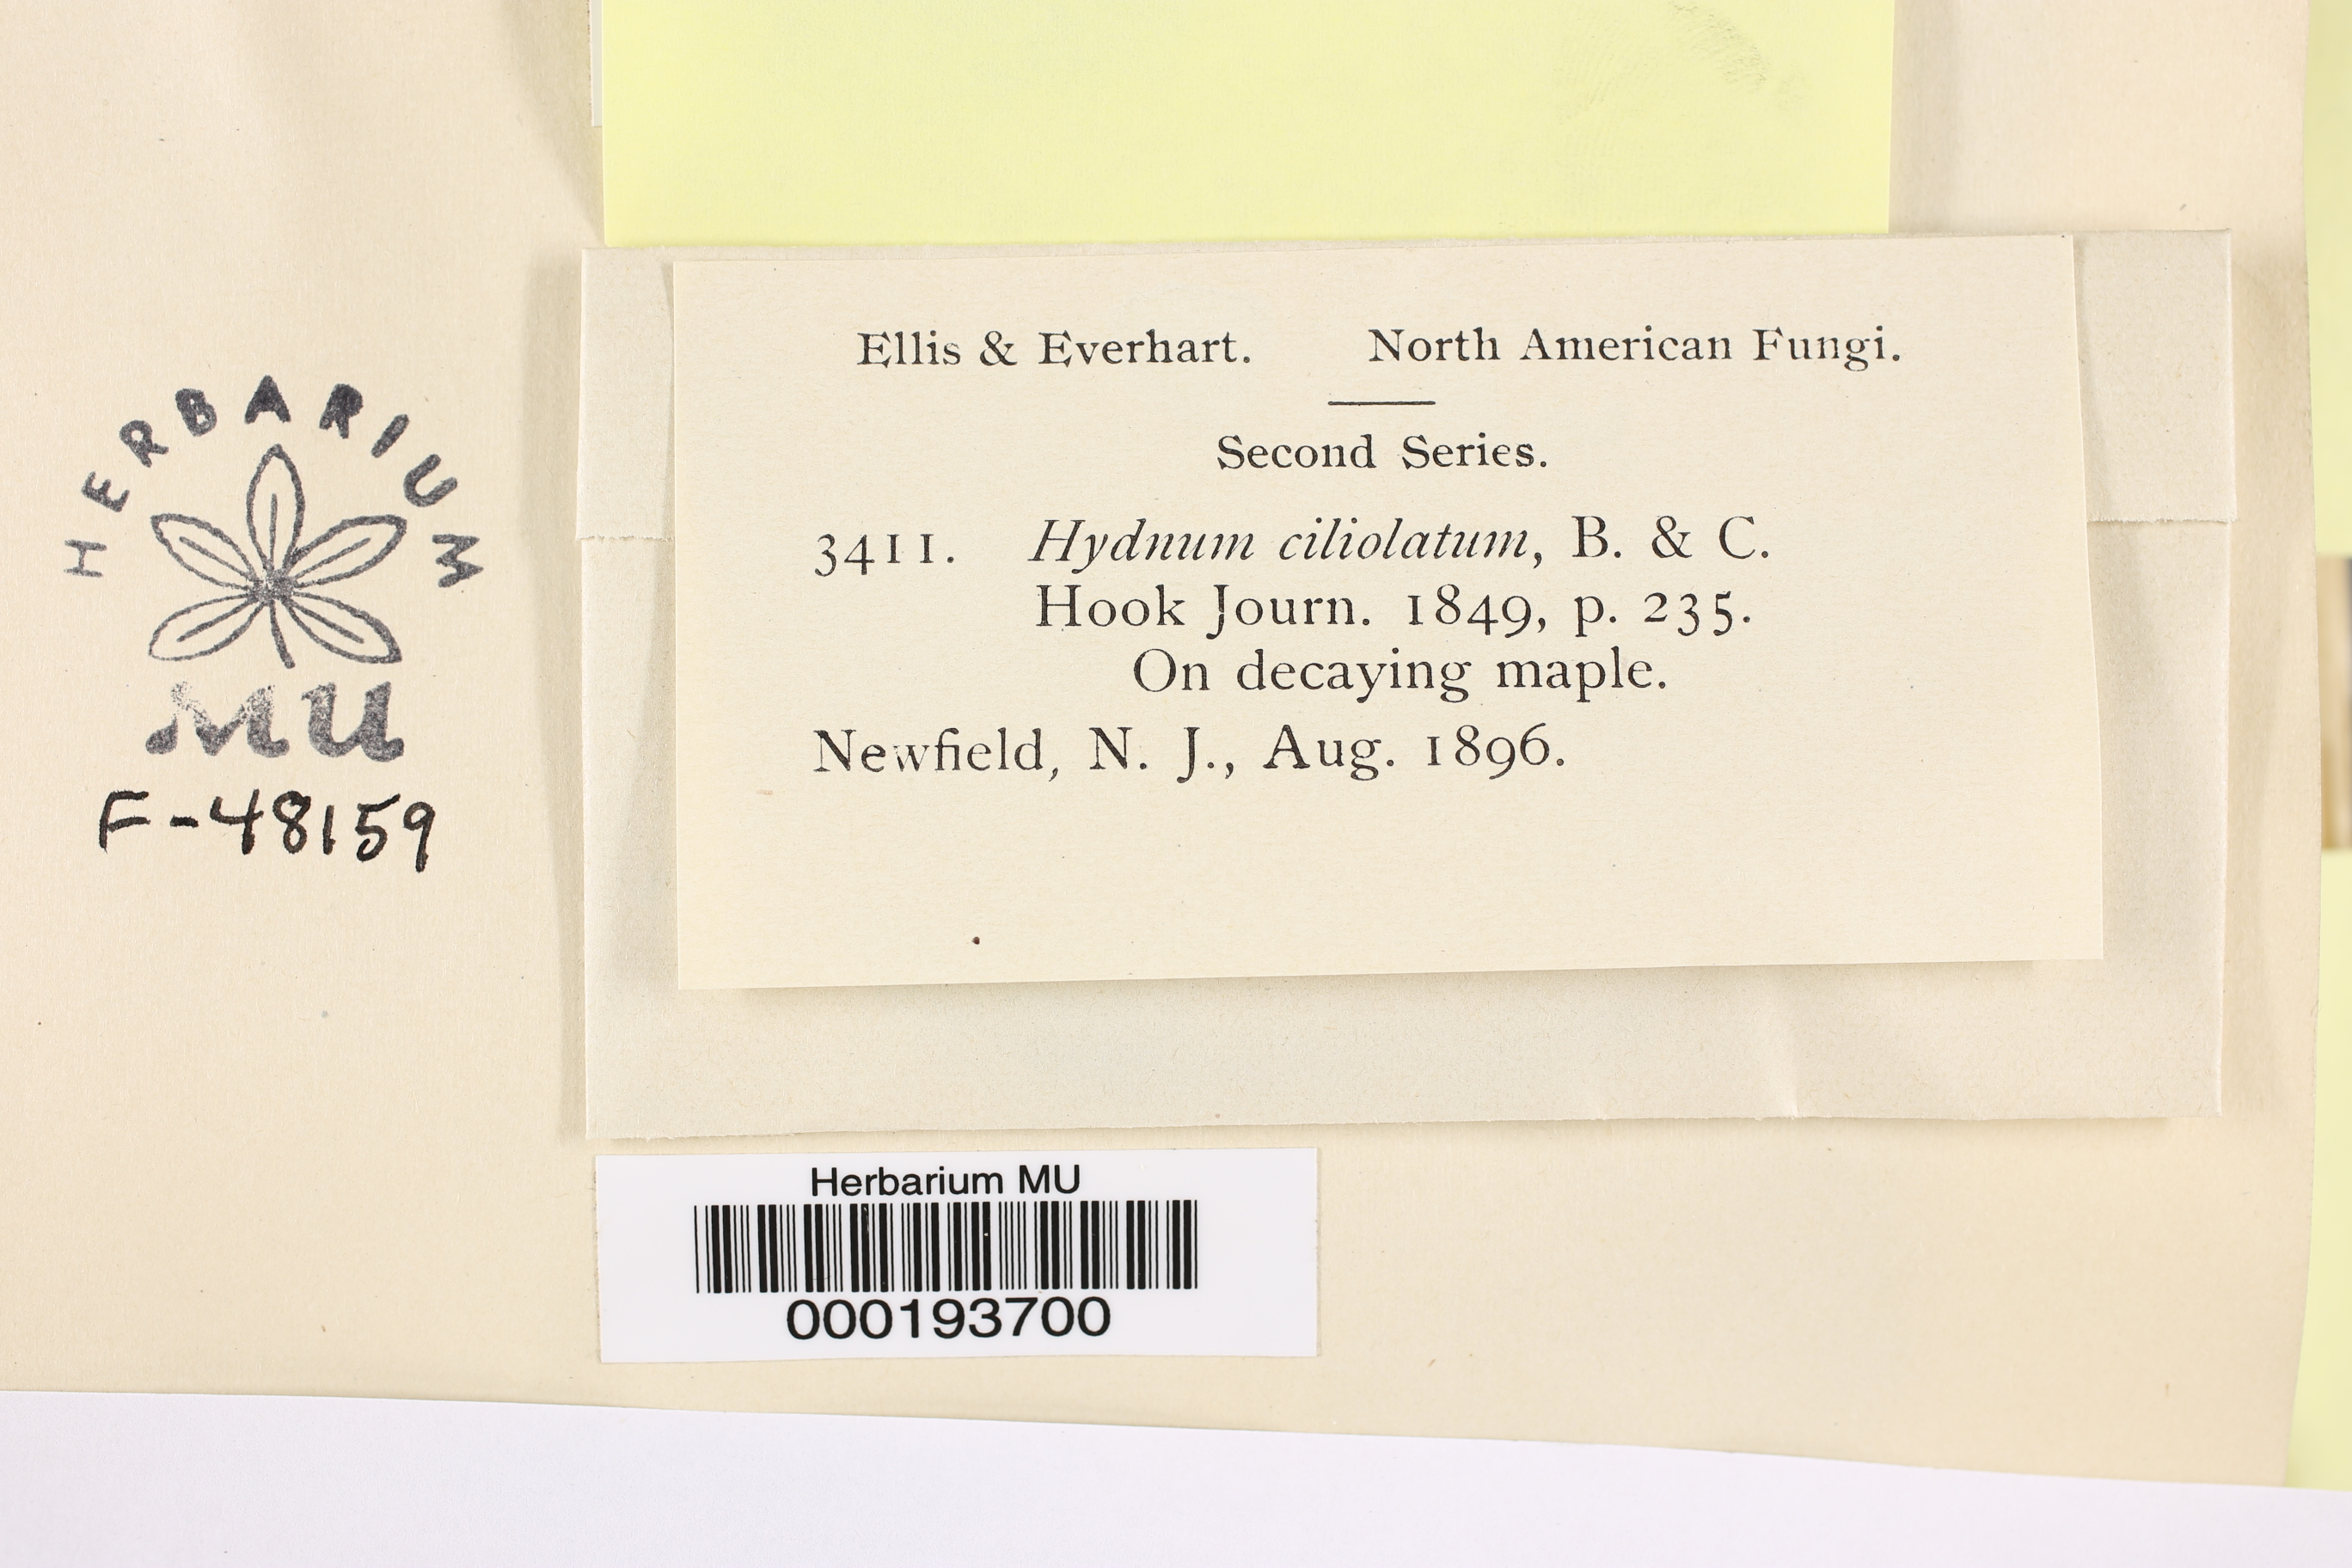 HERBARIUM
MU
F-48159
Ellis & Everhart. North American Fungi.
Second Series.
3411. Hydnum ciliolatum, B. & C.
Hook Journ. 1849, p. 235.
On decaying maple.
Newfield, N. J., Aug. 1896.
Herbarium MU
000193700